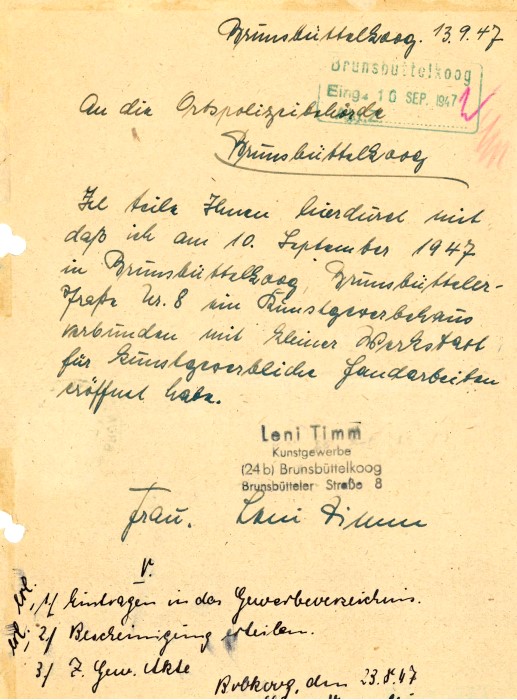 Brunsbüttelkoog. 13.9.47
Brunsbüttelkoog
Eing. 10 SEP. 1947
An die Ortspolizeibehörde
Brunsbüttelkoog
Ich teile Ihnen hierdurch mit
daß ich am 10. September 1947
in Brunsbüttelkoog, Brunsbütteler-
straße Nr. 8 ein Kunstgewerbehaus
verbunden mit kleiner Werkstatt
für kunstgewerbliche Handarbeiten
eröffnet habe.
Leni Timm
Kunstgewerbe
(24b) Brunsbüttelkoog
Brunsbütteler Straße 8
Frau. Leni Timm
V.
1/ Eintragen in das Gewerbeverzeichnis.
2/ Bescheinigung erteilen.
3/ Z. Gew. Akte
Bbkoog, den 23.8.47